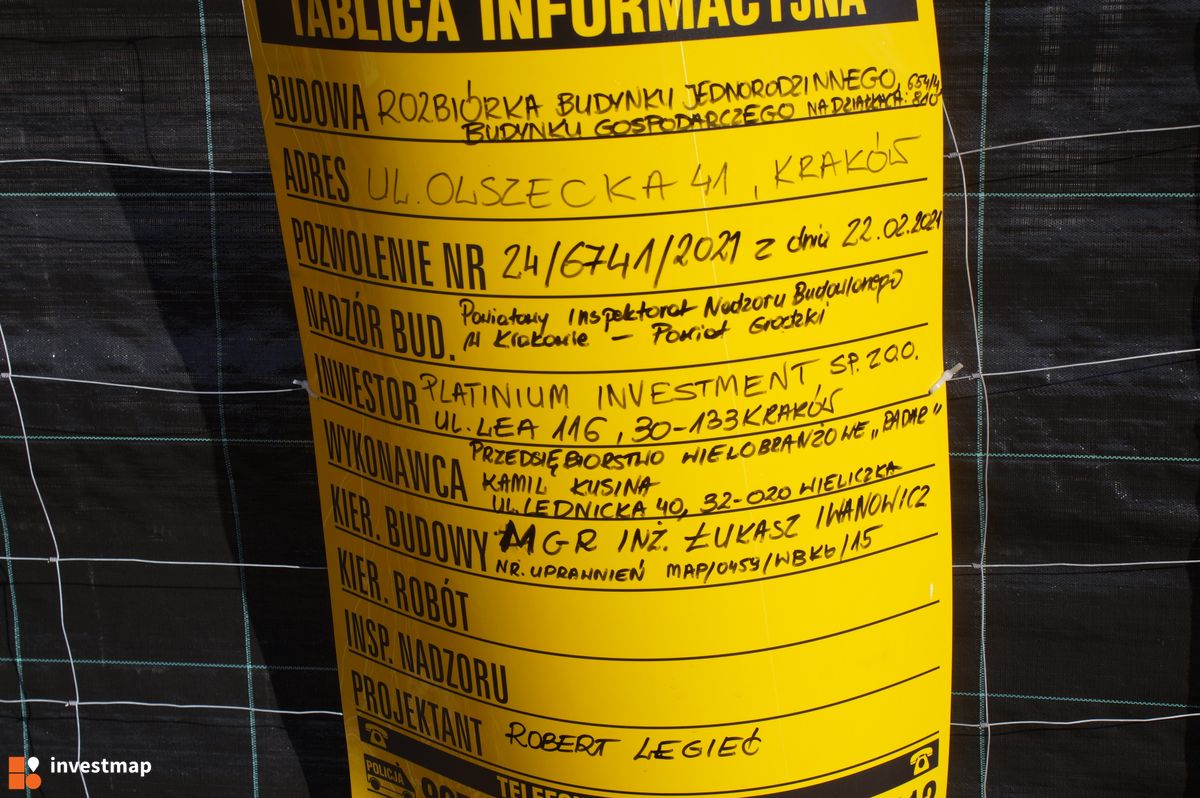 TABLICA INFORMACYJNA
BUDOWA ROZBIÓRKA BUDYNKU JEDNORODZINNEGO, 654/4,
BUDYNKU GOSPODARCZEGO NA DZIAŁKACH: 810
ADRES UL. OLSZECKA 41, KRAKÓW
POZWOLENIE NR 24/6741/2021 z dnia 22.02.2021
NADZÓR BUD. Powiatowy Inspektorat Nadzoru Budowlanego
w Krakowie – Powiat Grodzki
INWESTOR PLATINIUM INVESTMENT SP. Z O.O.
UL. LEA 116, 30-133 KRAKÓW
WYKONAWCA PRZEDSIĘBIORSTWO WIELOBRANŻOWE „BADAR"
KAMIL KUSINA
UL. LEDNICKA 40, 32-020 WIELICZKA
KIER. BUDOWY MGR INŻ. ŁUKASZ IWANOWICZ
NR. UPRAWNIEŃ MAP/0459/WBKb/15
KIER. ROBÓT
INSP. NADZORU
PROJEKTANT ROBERT LEGIEĆ
POLICJA
investmap